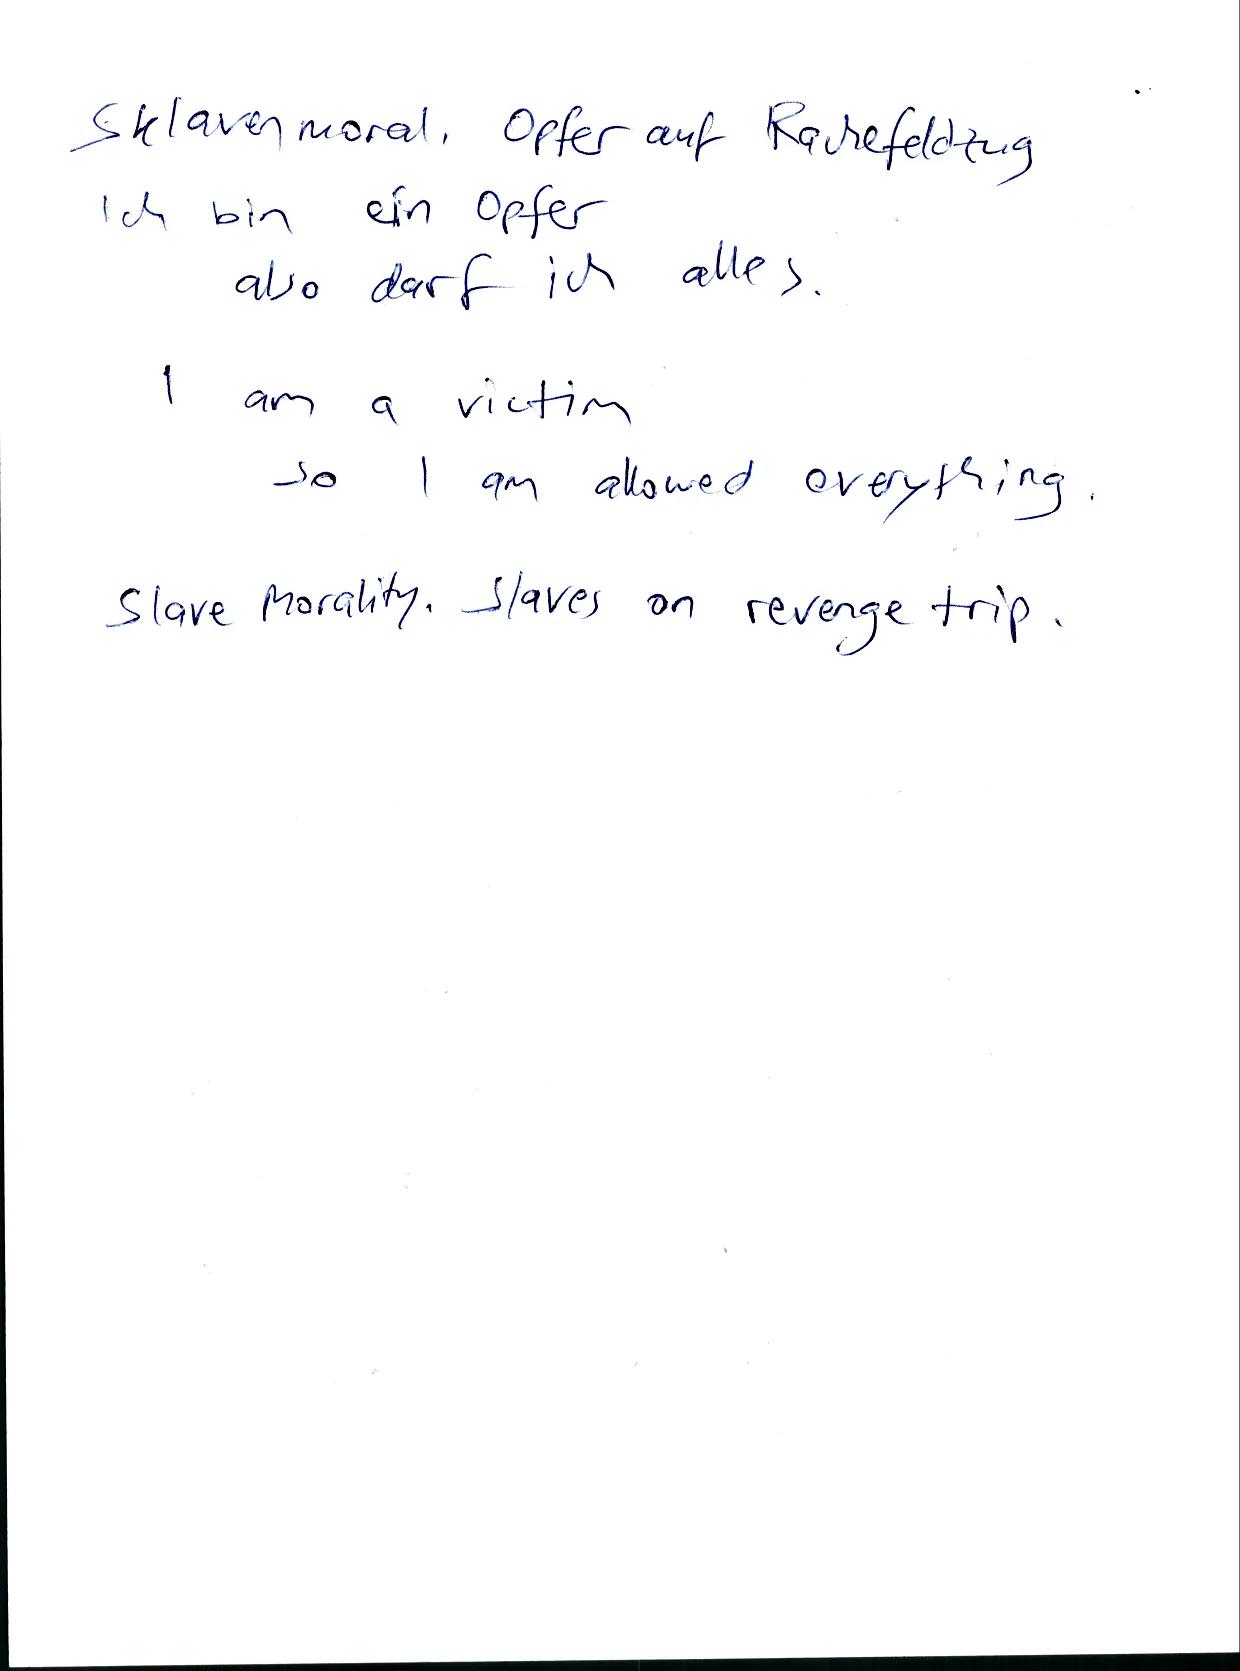 Sklavenmoral. Opfer auf Rachefeldzug
Ich bin ein Opfer
also darf ich alles.
I am a victim
so I am allowed everything.
Slave Morality. Slaves on revenge trip.